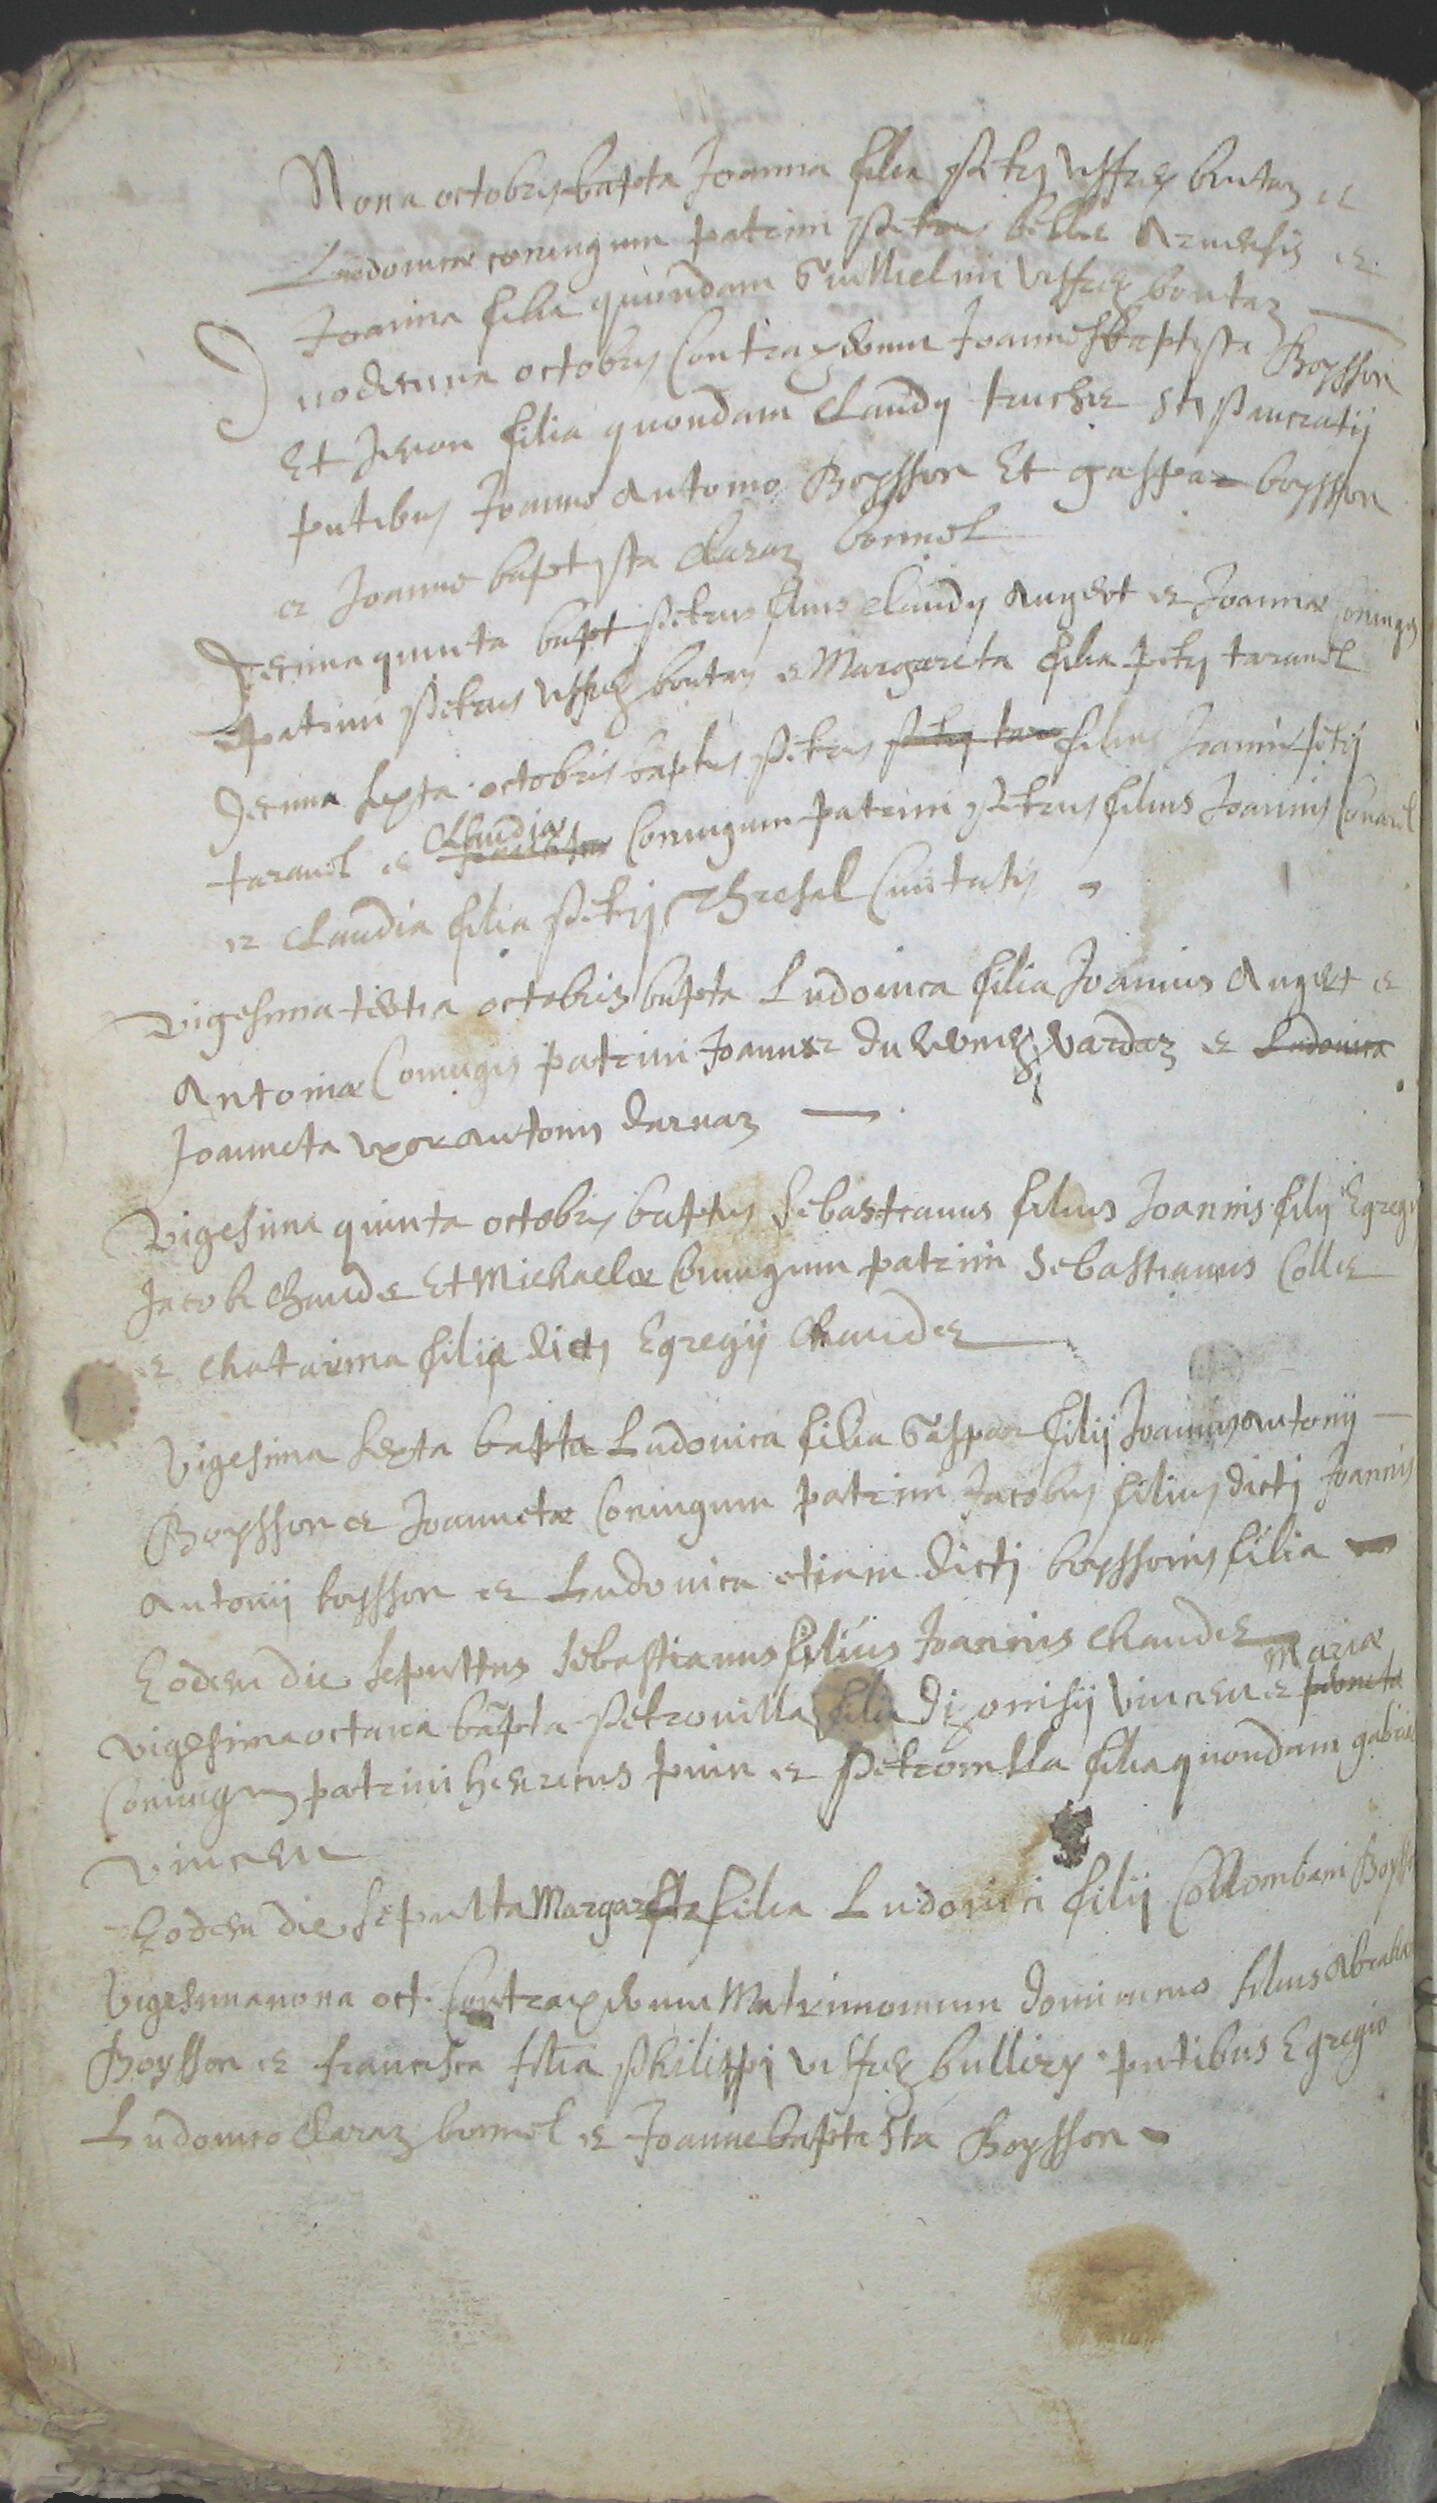 Nona octobris bapta Joanna filia petri Vissrey boutaz et
Ludovicæ coniugum patrini petrus belle et
Joanna filia quondam Guillielmi Vissrey boutaz
Duodecima octobris Contraxerunt Joannes baptista Boysson
Et filia quondam Claudij truche Sti pancratij
pntibus Joanne Antonio Boysson Et gaspar boysson
et Joanne baptista claraz bonnel
Decima quinta bapt petrus filius claudij Augert et Joannæ Coniugum
patrini petrus Vissrey boutaz et Margareta filia petri taravel
Decima sexta octobris baptus petrus filius Joannis petri
taravel et Claudiæ Coniugum patrini petrus filius Joannis
et Claudia filia petri Civitatis
Vigesima tertia octobris bapta Ludovica filia Joannis Augert et
Antoniæ Coniugis patrini Joannes Vardaz et Ludovica
Joanneta uxor antonij darvaz
Vigesima quinta octobris baptus Sebastianus filius Joannis filij Egregij
Jacobi chaude Et Michaelæ Coniugum patrini Sebastianus Colle
et Chatarina filia dicti Egregij Chaude
Vigesima sexta bapta Ludovica filia Gaspar filij Joannis Antonij
Boysson et Joannetæ Coniugum patrini Jacobus filius dicti Joannis
Antonij boysson et Ludovica etiam dicti boyssonis filia
Eodem die sepultus Sebastianus filius Joannis Chaude
Mariæ
Vigesima octava bapta petronilla filia Dionisij Vincen et
Coniugum patrini henricus puin et petronilla filia quondam gabriel
Vincen
Eodem die sepulta Margareta filia Ludovici filij Collombani Boysson
Vigesima nona oct. Contraxerunt Matrimonium Dominicus filius Abraham
Boysson et francisca filia philippi Vissrey bulliery pntibus Egregio
Ludovico claraz bonnel et Joanne baptista Boysson